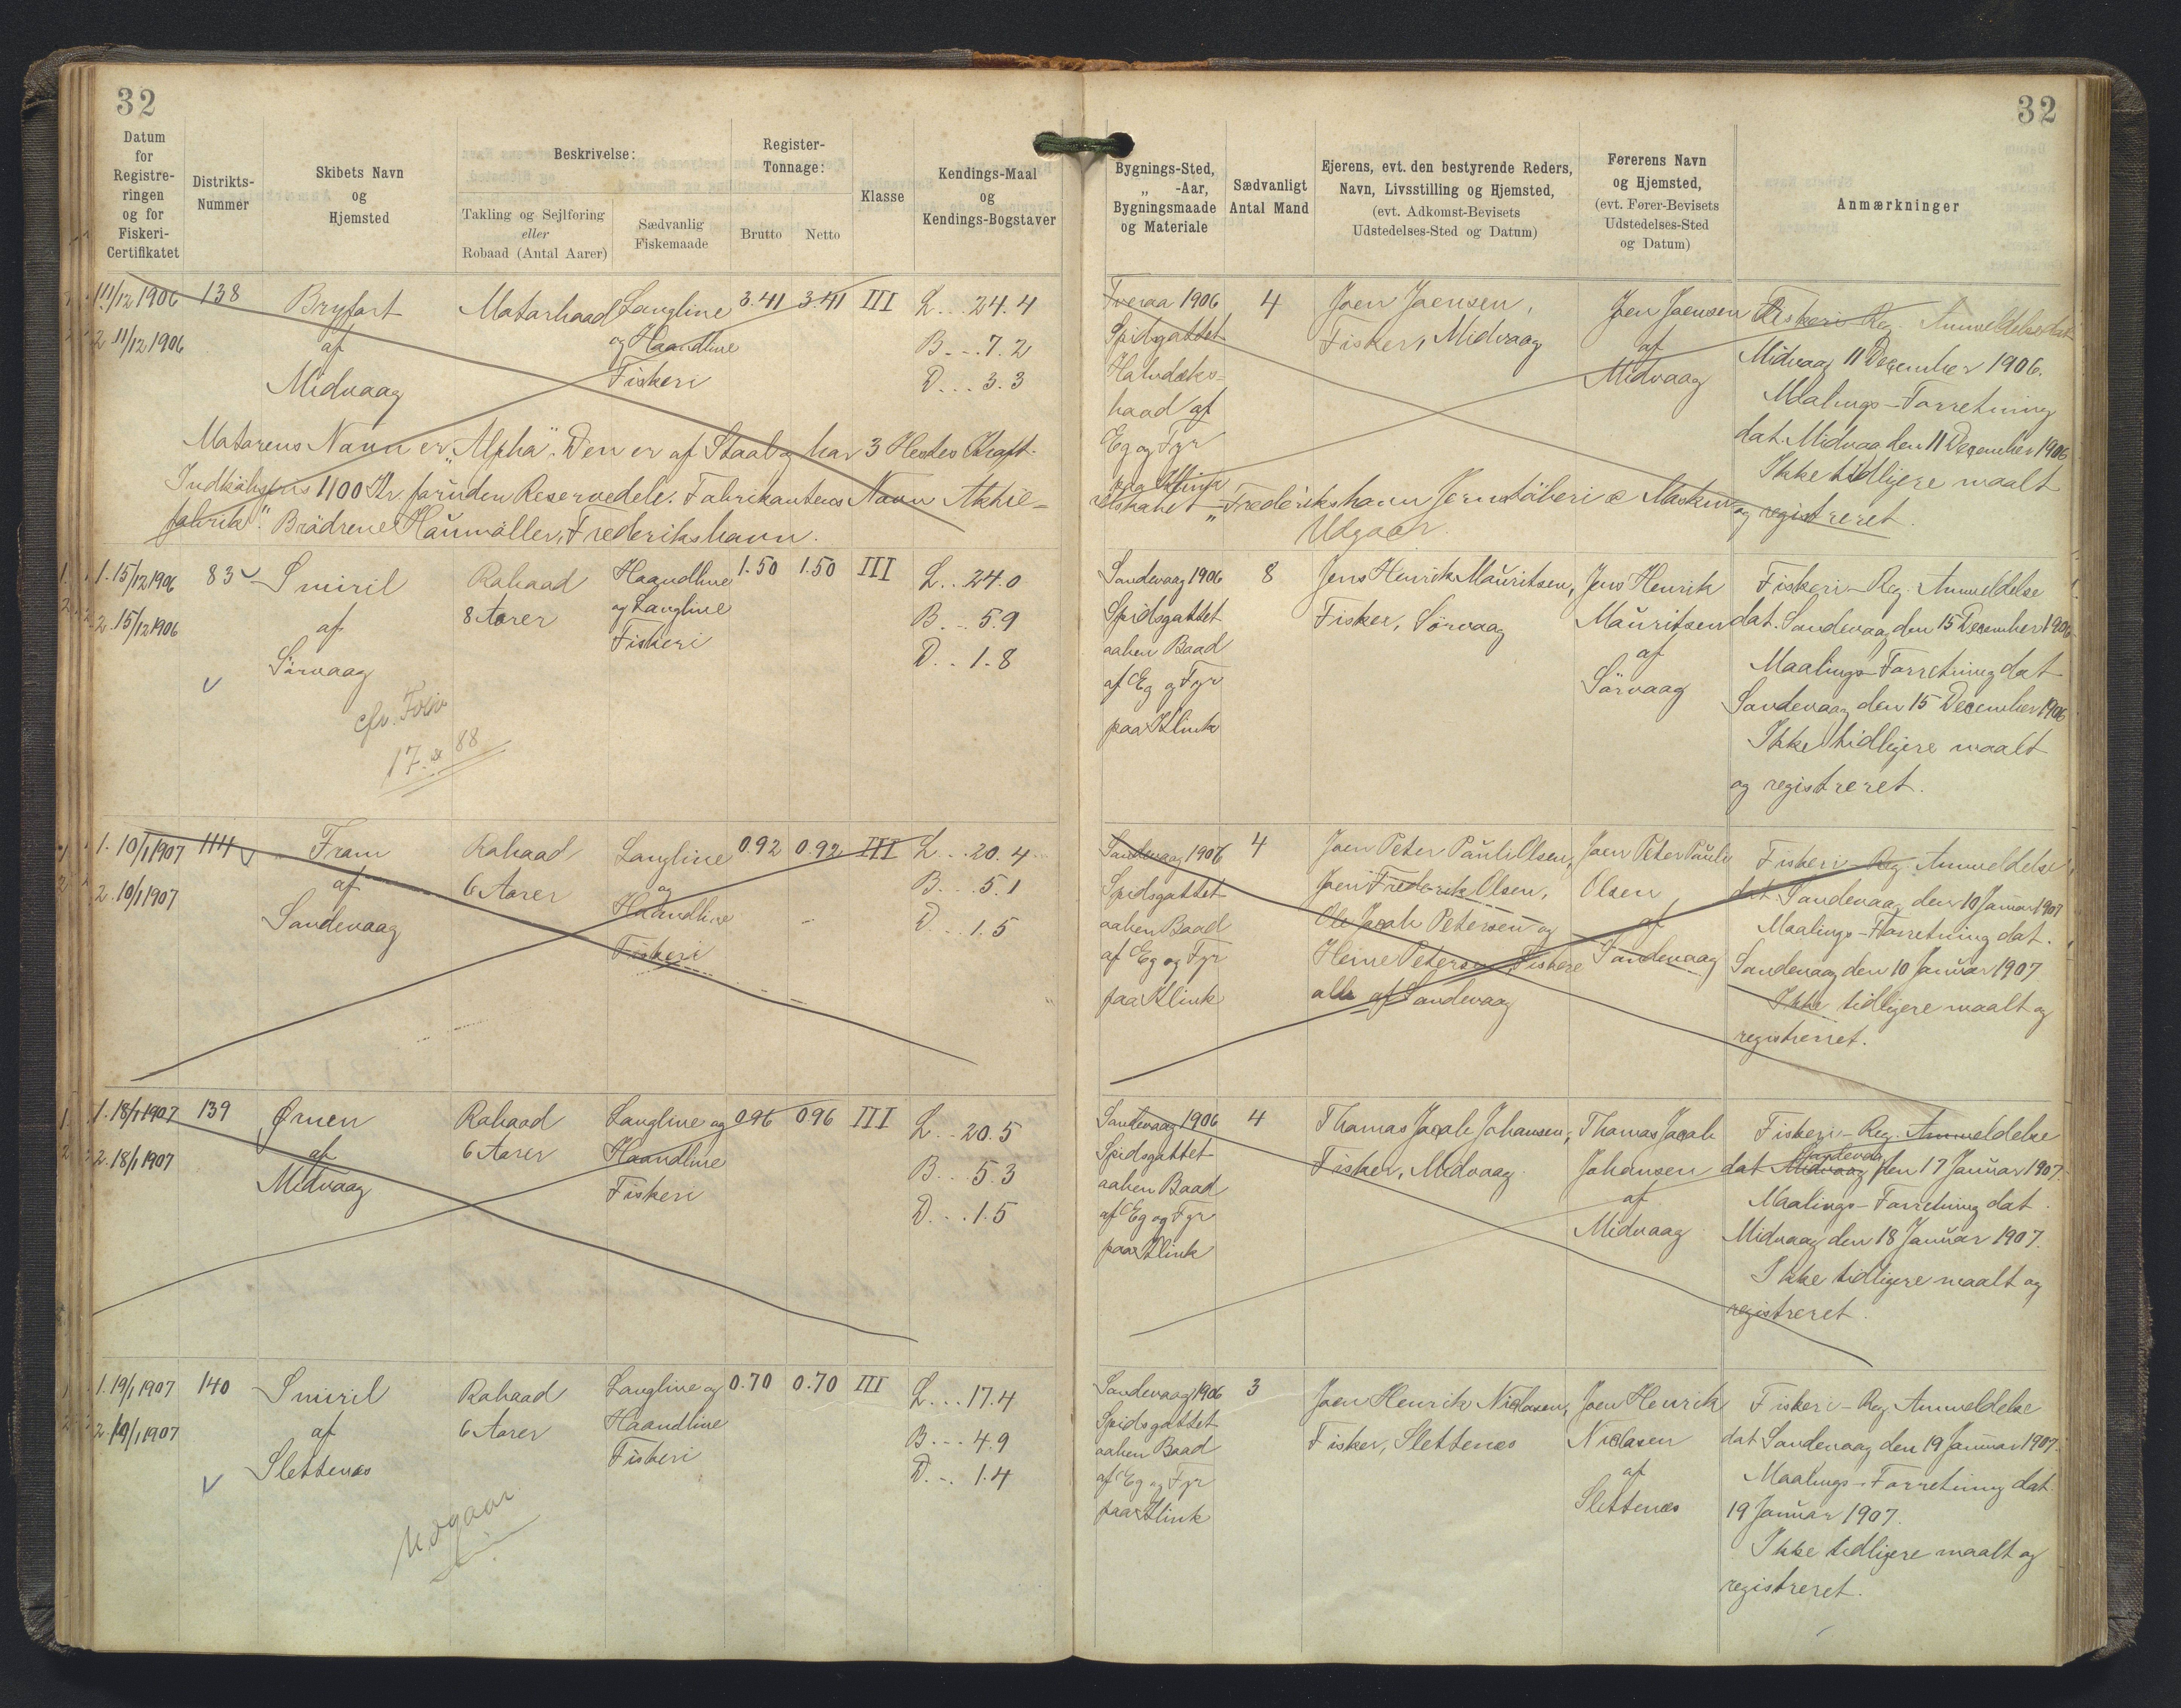 32
32
Datum
for
Registre-
ringen
og for
Fiskeri-
Certifikatet
Distrikts-
Nummer
Skibets Navn
og
Hjemsted
Beskrivelse:
Takling og Sejlføring
eller
Robaad (Antal Aarer)
Sædvanlig
Fiskemaade
Register-
Tonnage:
Brutto
Netto
Klasse
Kendings-Maal
og
Kendings-Bogstaver
Bygnings-Sted,
„ -Aar,
Bygningsmaade
og Materiale
Sædvanligt
Antal Mand
Ejerens, evt. den bestyrende Reders,
Navn, Livsstilling og Hjemsted,
(evt. Adkomst-Bevisets
Udstedelses-Sted og Datum)
Førerens Navn
og Hjemsted,
(evt. Fører-Bevisets
Udstedelses-Sted
og Datum)
Anmærkninger
1 11/12 1906
2 11/12 1906
138
af
Midvaag
Motorbaad
Langline
og Haandline
Fiskeri
3.41
3.41
III
L...24.4
B...7.2
D...3.3
Tveraa 1906
Spidsgattet
Halvdæks-
baad af
Eg og Fyr
paa Klink
4
Joen Joensen,
Fisker, Midvaag
Joen Joensen
af
Midvaag
Fiskeri-Reg. Anmeldelse dat
Midvaag 11 December 1906.
Maalings-Forretning
dat. Midvaag den 11 December 1906
Ikke tidligere maalt
og registreret.
Motorens Navn er „Alpha". Den er af Staal og har 3 Hestes Kraft.
Indkøbspris 1100 Kr. foruden Reservedele. Fabrikantens Navn Aktie-
selskabet „Frederikshavn Jernstøberi & Maskin-
fabrik". Brødrene Houmøller, Frederikshavn.
Udgaar.
1. 15/12 1906
2. 15/12 1906
83
Smiril
af
Sörvaag
cfr. Folio
17. & 88
Robaad
8 Aarer
Haandline
og Langline
Fiskeri
1.50
1.50
III
L..24.0
B...5.9
D..1.8
Sandevaag 1906
Spidsgattet
aaben Baad
af Eg og Fyr
paa Klink
8
Jens Henrik Mauritsen,
Fisker, Sörvaag
Jens Henrik
Mauritsen
af
Sörvaag
Fiskeri-Reg. Anmeldelse
dat. Sandevaag den 15 December 1906
Maalings-Forretning dat
Sandevaag den 15 December 1906
Ikke tidligere maalt
og registreret.
1. 10/1 1907
2. 10/1 1907
114
Fram
af
Sandevaag
Robaad
6 Aarer
Langline
og
Haandline
Fiskeri
0.92
0.92
III
L...20.4
B...5.1
D...1.5
Sandevaag 1906
Spidsgattet
aaben Baad
af Eg og Fyr
paa Klink
4
Joen Peter Pauli Olsen,
Joen Frederik Olsen,
Ole Jacob Petersen og
Heine Petersen, Fiskere
alle af Sandevaag
Joen Peter Pauli
Olsen
af
Sandevaag
Fiskeri-Reg. Anmeldelse
dat Sandevaag den 10 Januar 1907
Maalings-Forretning dat.
Sandevaag den 10 Januar 1907
Ikke tidligere maalt og
registreret.
1. 18/1 1907
2. 18/1 1907
139
Ørnen
af
Midvaag
Robaad
6 Aarer
Langline og
Haandline
Fiskeri
0.96
0.96
III
L...20.5
B...5.3
D...1.5
Sandevaag 1906
Spidsgattet
aaben Baad
af Eg og Fyr
paa Klink
4
Thomas Jacob Johansen,
Fisker, Midvaag
Thomas Jacob
Johansen
af
Midvaag
Fiskeri-Reg. Anmeldelse
Sandevaag
dat Midvaag den 17 Januar 1907.
Maalings-Forretning dat
Midvaag den 18 Januar 1907.
Ikke tidligere maalt og
registreret.
1. 19/1 1907
2 19/1 1907
140
Smiril
af
Slettenæs
Udgaar
Robaad
6 Aarer
Langline og
Haandline
Fiskeri
0.70
0.70
III
L...17.4
B...4.9
D...1.4
Sandevaag 1906
Spidsgattet
aaben Baad
af Eg og Fyr
paa Klink
3
Joen Henrik Niclasen,
Fisker, Slettenæs
Joen Henrik
Niclasen
af
Slettenæs
Fiskeri-Reg Anmeldelse
dat Sandevaag den 19 Januar 1907.
Maalings-Forretning dat
19 Januar 1907.
Ikke tidligere maalt og
registreret.